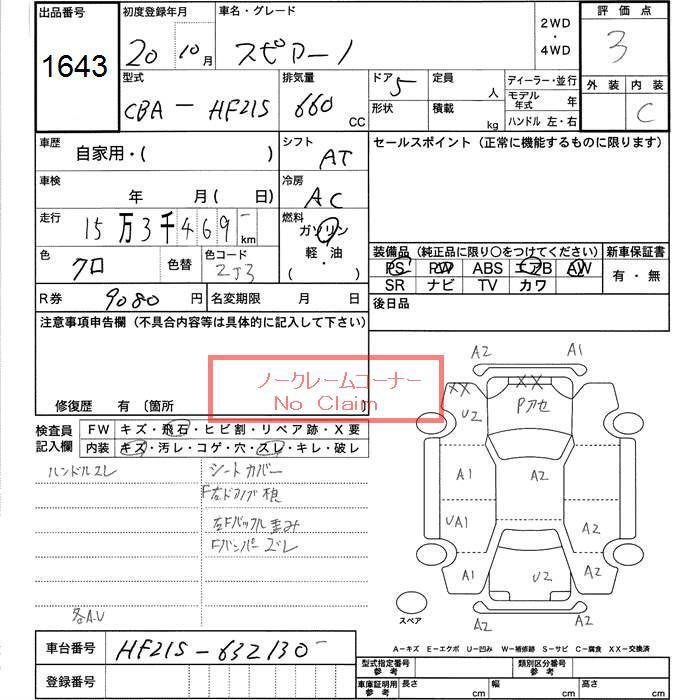 出品番号 初度登録年月 車名・グレード 2WD・4WD 評価点
1643 20 10月 スピアーノ 3
型式 排気量 ドア 5 定員 人 ディーラー・並行 外装 内装
CBA - HF21S 660 CC 形状 積載 kg モデル年式 年 C
ハンドル 左・右
車歴 自家用・( ) シフト AT セールスポイント (正常に機能するものに限ります)
車検 年 月 ( 日) 冷房 AC
走行 15万3千469 km 燃料 ガソリン
軽・油
( )
色 クロ 色替 色コード ZJ3
装備品 (純正品に限り○をつけてください) 新車保証書
PS PW ABS エアB AW 有・無
SR ナビ TV カワ
R券 9080 円 名変期限 月 日 後日品
注意事項申告欄 (不具合内容等は具体的に記入して下さい)
ノークレームコーナー
No Claim
修復歴 有 〔箇所
検査員記入欄 FW キズ・飛石・ヒビ割・リペア跡・X要
内装 キズ・汚レ・コゲ・穴・スレ・キレ・破レ
ハンドルスレ シートカバー
左Fバックル歪み
Fバンパーズレ
各A.U
A2 A1
XX XX
U2
A1 A2
UA1 A2
A1 U2 A2
A2 A2
スペア
A-キズ E-エクボ U-凹み W-補修跡 S-サビ C-腐食 XX-交換済
車台番号 HF21S-632130
登録番号
型式指定番号 参考 類別区分番号 参考
車庫証明用 参考 長さ cm 幅 cm 高さ cm